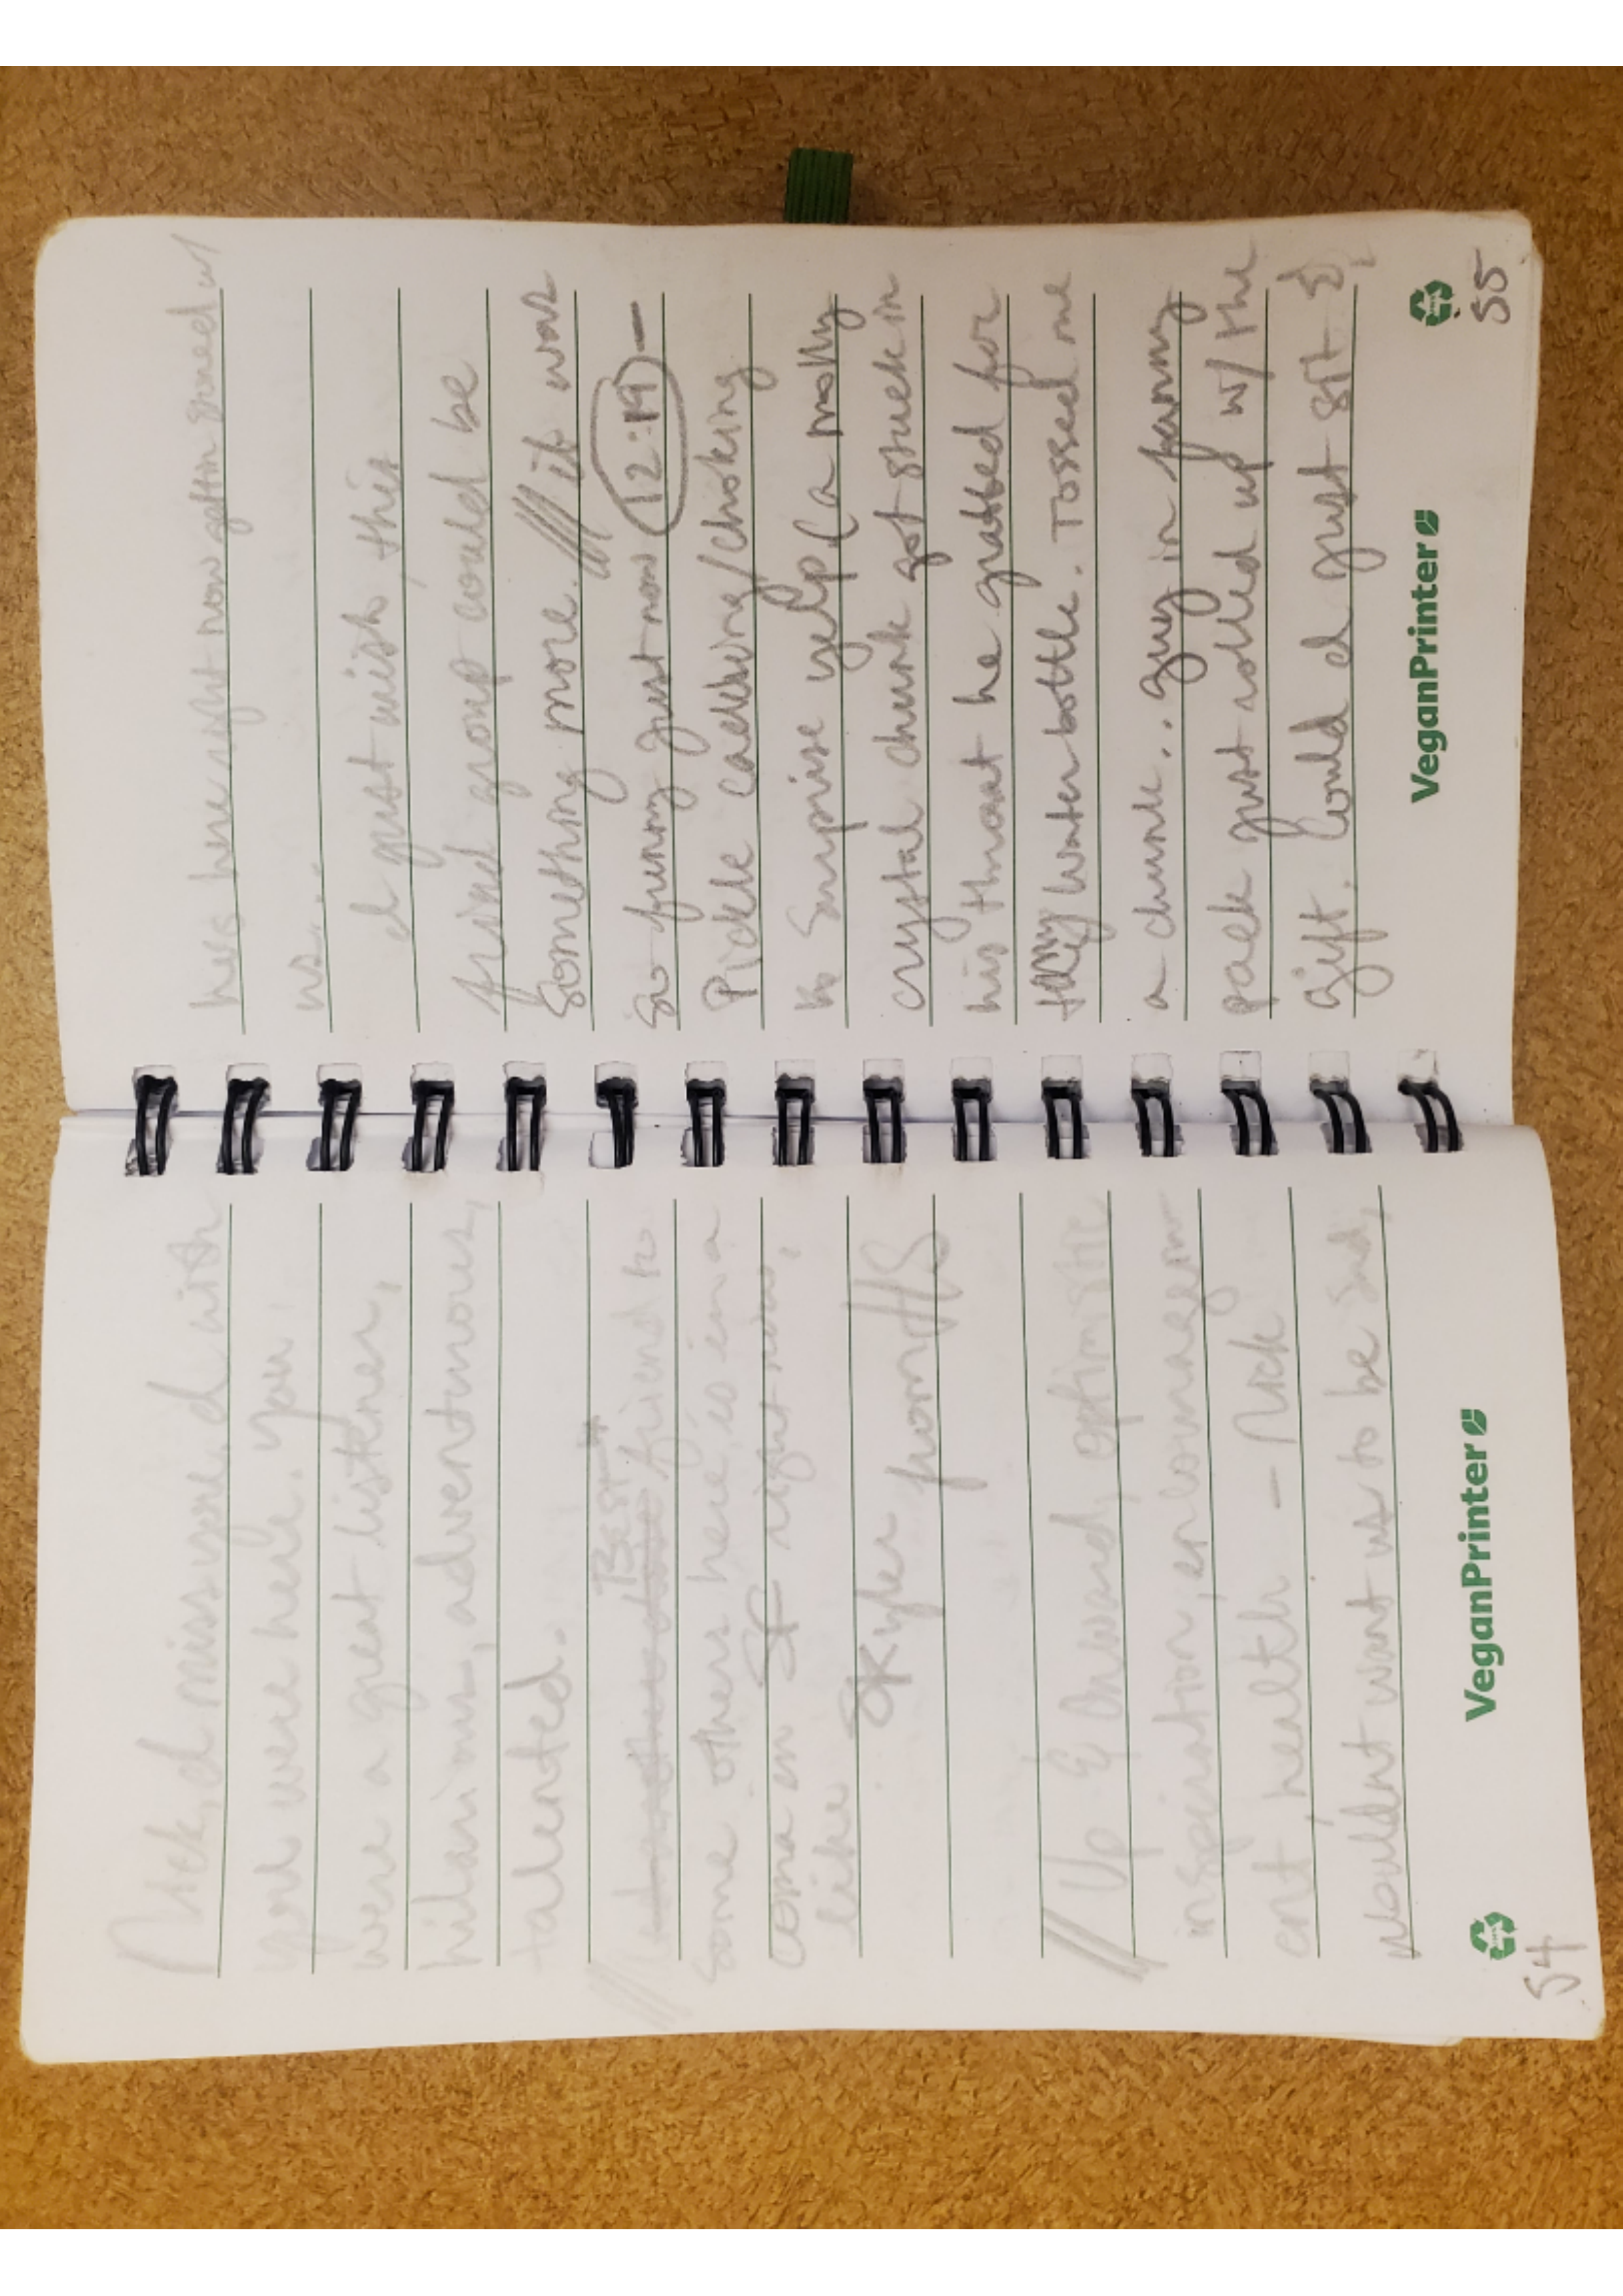 Nick, I miss you. I wish
you were here. You
were a great listener,
hilarious, adventurous,
talented.
Best
friend to
some others here, is in a
coma in SF right now,
like Skyler from HS
// Up & Onward, optimistic
inspiration, encouragem
ent, health — Nick
wouldnt want us to be sad,
54
VeganPrinter
hes here right now gettin stoned w/
us..
I just wish this
friend group could be
something more. /// it was
so funny just now (12:19) —
Pickle cackling/choking
to surprise yelp (a molly
crystal chunk got stuck in
his throat he grabbed for
my water bottle. Tossed me
a chunk.. guy in fanny
pack just rolled up w/ the
gift. Could I just sit &
VeganPrinter
55